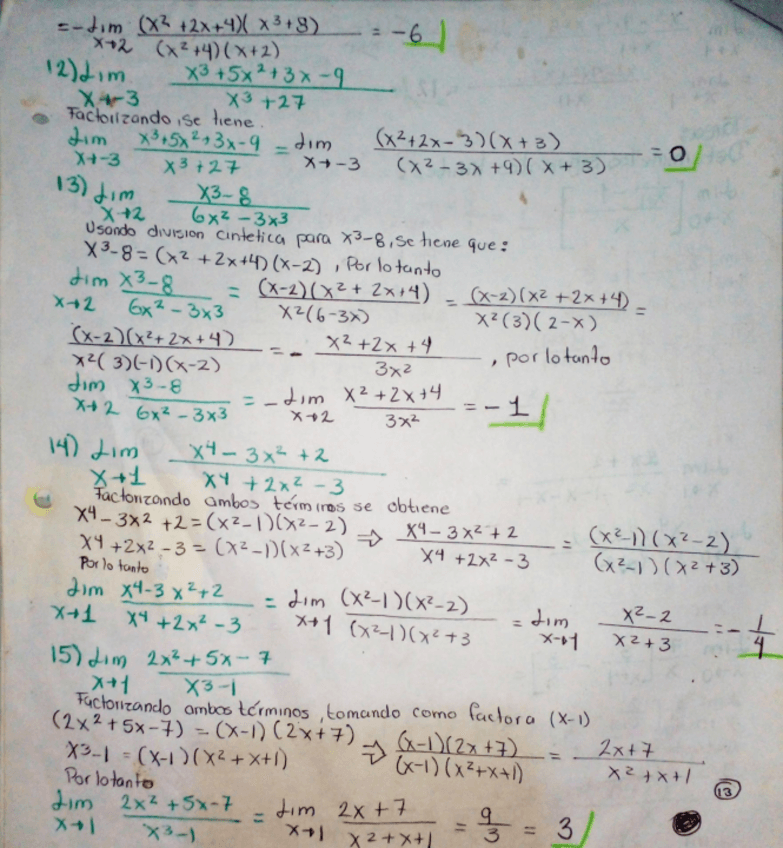 = - Lim (x² + 2x + 4)(x³ + 8) / (x² + 4)(x + 2) = -6
x→2
12) Lim x³ + 5x² + 3x - 9 / x³ + 27
x→-3
Factorizando, se tiene.
Lim x³ + 5x² + 3x - 9 / x³ + 27 = Lim (x² + 2x - 3)(x + 3) / (x² - 3x + 9)(x + 3) = 0
x→-3 x→-3
13) Lim x3 - 8 / 6x² - 3x³
x→2
Usando division cintetica para x³-8, se tiene que:
x³-8 = (x² + 2x + 4)(x-2), Por lo tanto
Lim x³-8 / 6x² - 3x3 = (x-2)(x² + 2x + 4) / x²(6-3x) = (x-2)(x² + 2x + 4) / x²(3)(2-x) =
x→2
(x-2)(x² + 2x + 4) / x²(3)(-1)(x-2) = - x² + 2x + 4 / 3x², por lo tanto
Lim x³-8 / 6x² - 3x³ = - Lim x² + 2x + 4 / 3x² = -1
x→2 x→2
14) Lim x⁴ - 3x² + 2 / x⁴ + 2x² - 3
x→1
Factorizando ambos términos se obtiene
x⁴ - 3x² + 2 = (x²-1)(x²-2) ⇒ x⁴ - 3x² + 2 / x⁴ + 2x² - 3 = (x²-1)(x²-2) / (x²-1)(x²+3)
x⁴ + 2x² - 3 = (x²-1)(x²+3)
Por lo tanto
Lim x⁴-3x²+2 / x⁴ + 2x² - 3 = Lim (x²-1)(x²-2) / (x²-1)(x²+3 = Lim x²-2 / x²+3 = - 1/4
x→1 x→1 x→1
15) Lim 2x² + 5x - 7 / x³-1
x→1
Factorizando ambos términos, tomando como factor a (x-1)
(2x² + 5x - 7) = (x-1)(2x+7) ⇒ (x-1)(2x+7) / (x-1)(x²+x+1) = 2x+7 / x²+x+1
x³-1 = (x-1)(x² + x+1)
Por lo tanto
13
Lim 2x² + 5x-7 / x³-1 = Lim 2x + 7 / x² + x+1 = 9/3 = 3
x→1 x→1